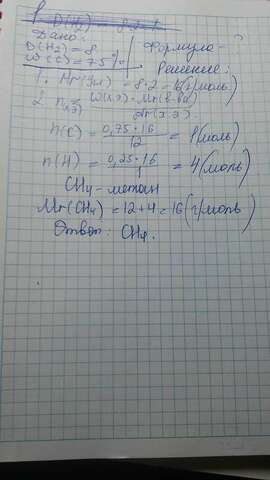 Дано:
D(H₂) = 8
W(C) = 75%
Формула -
Решение:
1. Mr(Ув) = 8·2 = 16(г/моль)
2. n(хэ) = W(хэ)·Mr(в-ва) / Ar(хэ)
n(C) = 0,75·16 / 12 = 1(моль)
n(H) = 0,25·16 / 1 = 4(моль)
CH₄ - метан
Mr(CH₄) = 12+4 = 16(г/моль
Ответ: CH₄.